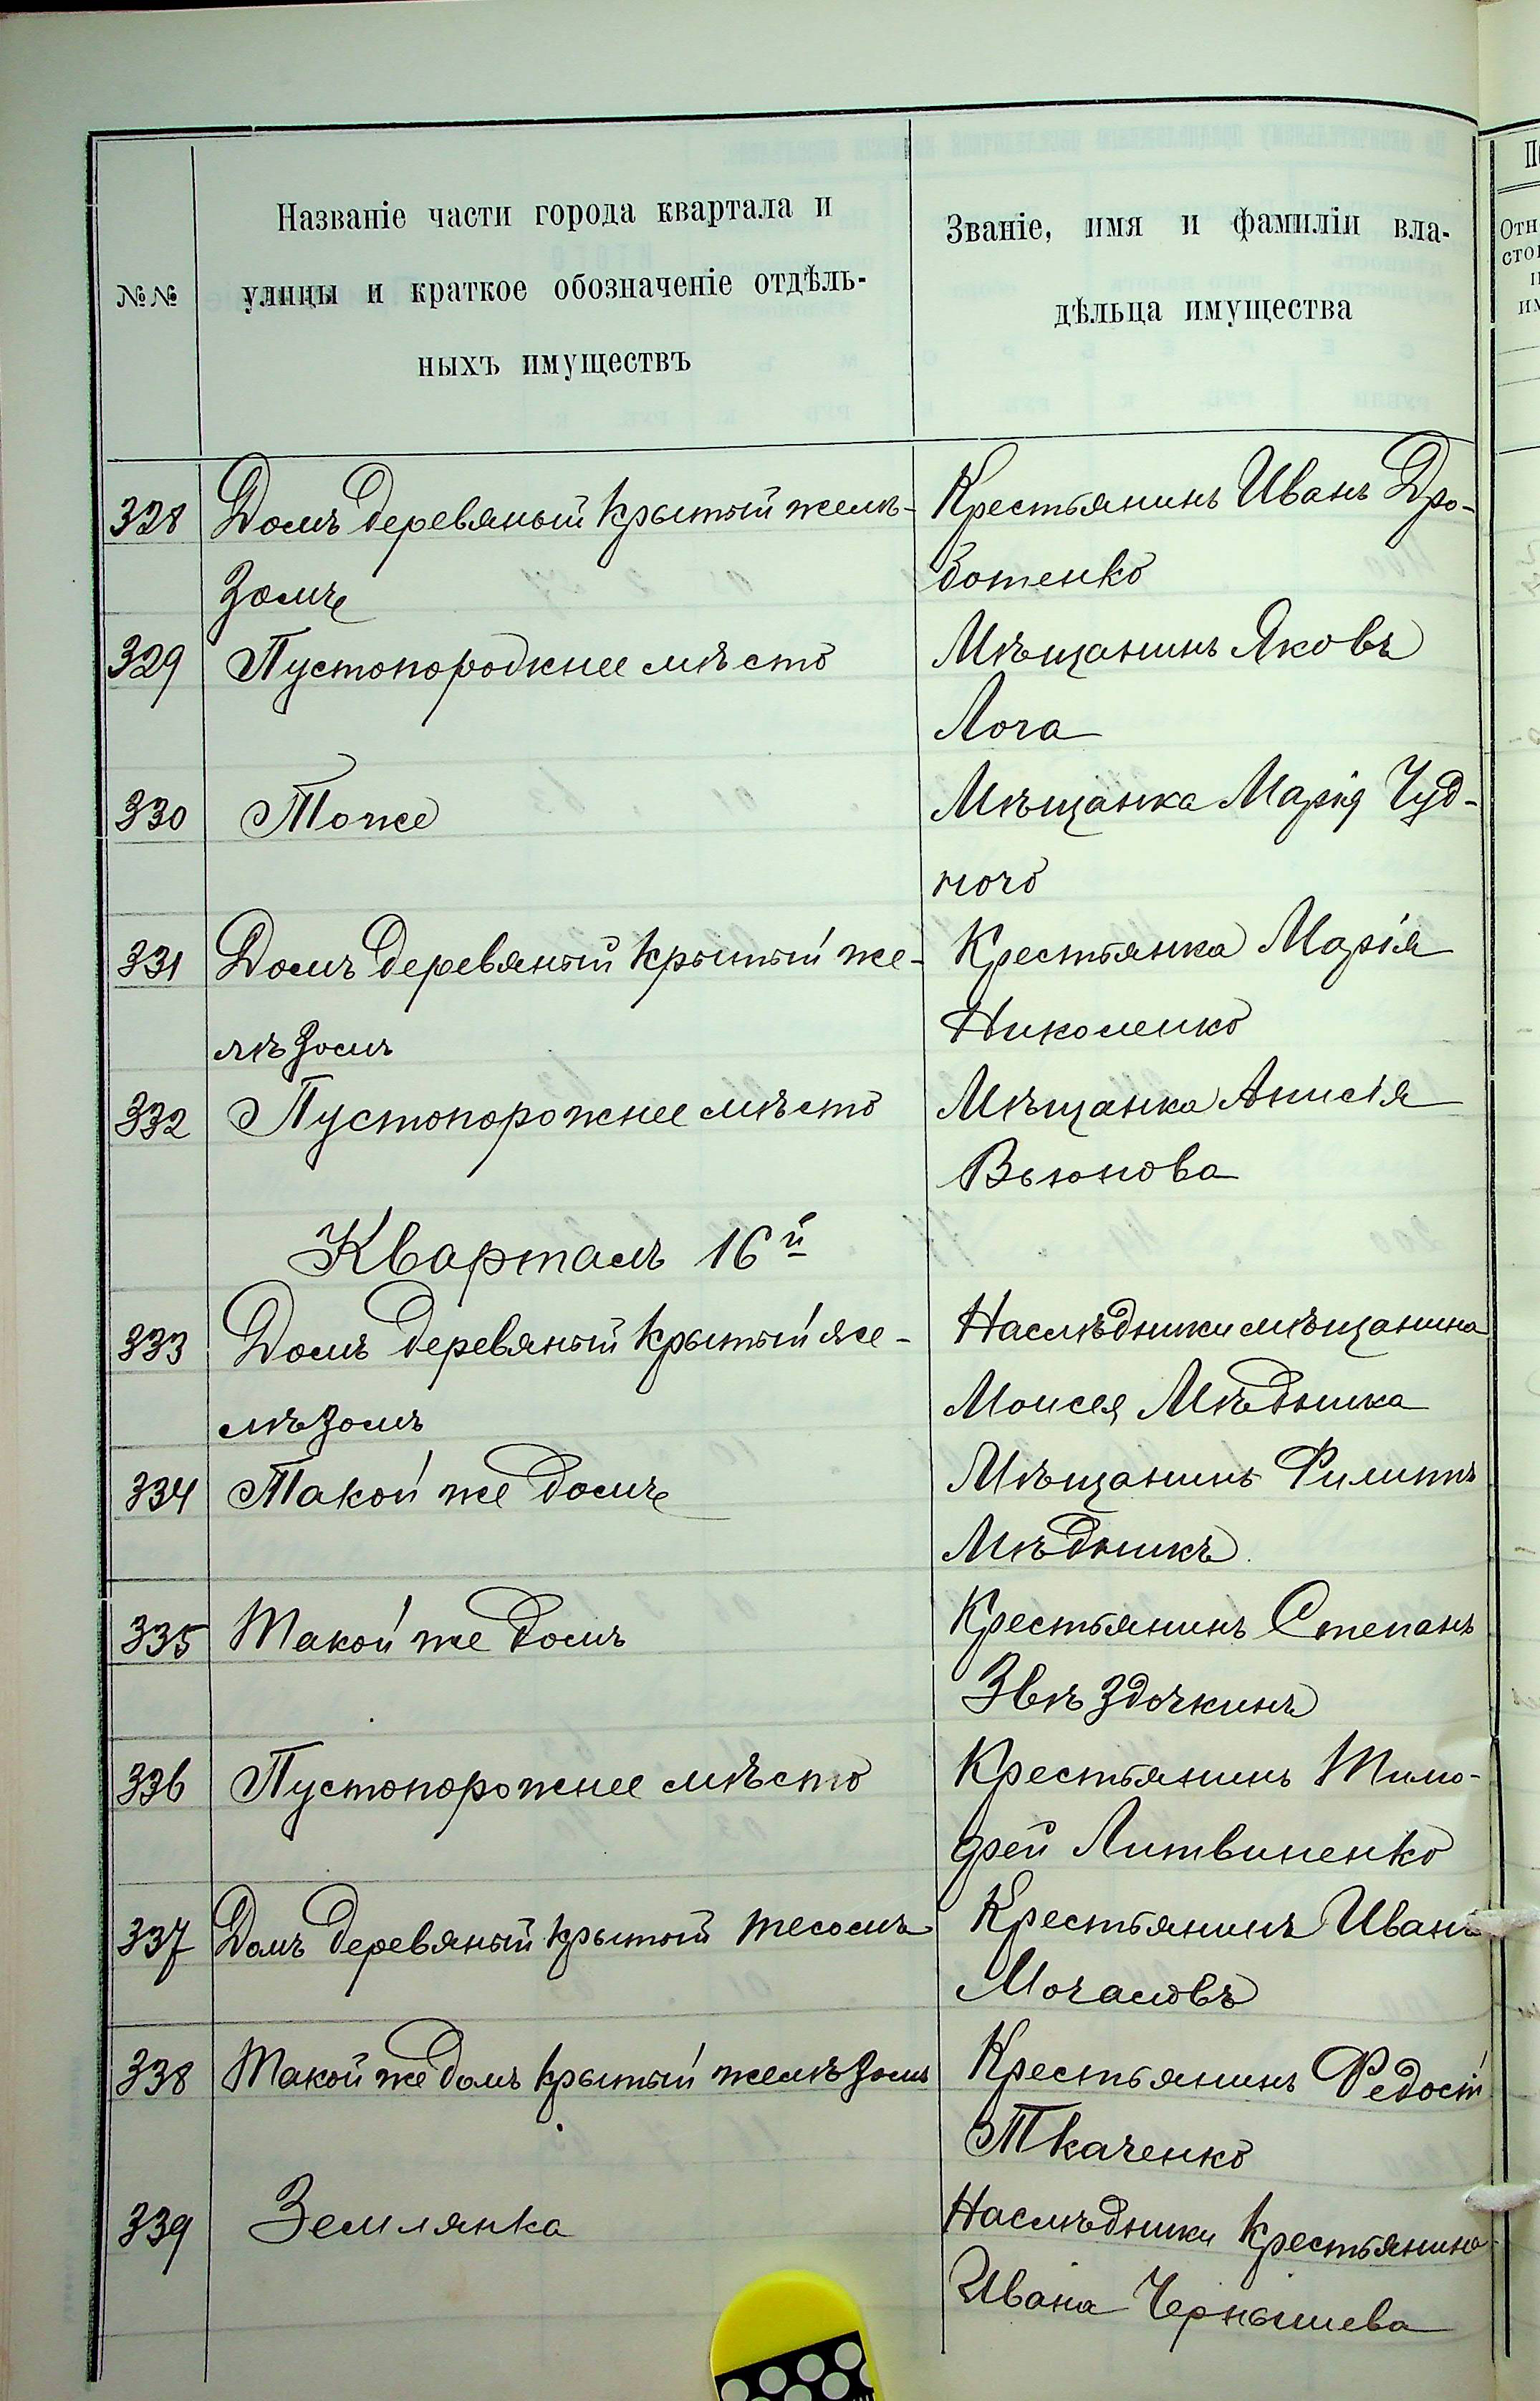 №№
Названіе части города квартала и
улицы и краткое обозначеніе отдѣль-
ныхъ имуществъ
Званіе, имя и фамиліи вла-
дѣльца имущества
328 Домъ деревяный крытый желѣ- Крестьянинъ Иванъ Дро-
зомъ ботенко
329 Пустопорожнее мѣсто Мѣщанинъ Яковъ
Лога
330 Тоже Мѣщанка Марія Чуд-
ного
331 Домъ деревяный крытый же- Крестьянка Марія
лѣзомъ Николенко
332 Пустопорожнее мѣсто Мѣщанка Анисія
Вьюнова
Кварталъ 16й
333 Домъ деревяный крытый же- Наслѣдники мѣщанина
лѣзомъ Моисея Мѣдника
334 Такой же домъ Мѣщанинъ Филиппъ
Мѣдникъ
335 Такой же домъ Крестьянинъ Степанъ
Звѣздочкинъ
336 Пустопорожнее мѣсто Крестьянинъ Тимо-
фей Литвиненко
337 Домъ деревяный крытый тесомъ Крестьянинъ Иванъ
Мочаловъ
338 Такой же домъ крытый желѣзомъ Крестьянинъ Федосій
Ткаченко
339 Землянка Наслѣдники крестьянина
Ивана Чернышева